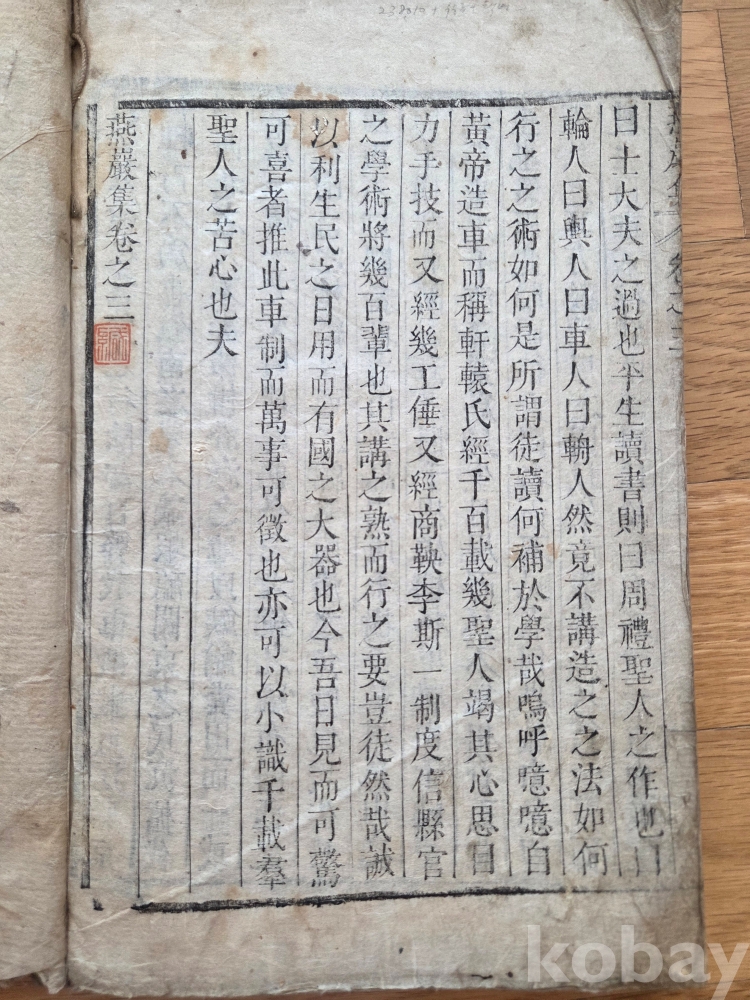 曰士大夫之過也平生讀書則曰周禮聖人之作也曰
輪人曰輿人曰車人曰輈人然竟不講造之之法如何
行之之術如何是所謂徒讀何補於學哉嗚呼噫噫自
黃帝造車而稱軒轅氏經千百載幾聖人竭其心思目
力手技而又經幾工倕又經商鞅李斯一制度信縣官
之學術將幾百輩也其講之熟而行之要豈徒然哉誠
以利生民之日用而有國之大器也今吾日見而可驚
可喜者推此車制而萬事可徵也亦可以小識千載羣
聖人之苦心也夫
燕巖集卷之三
kobay